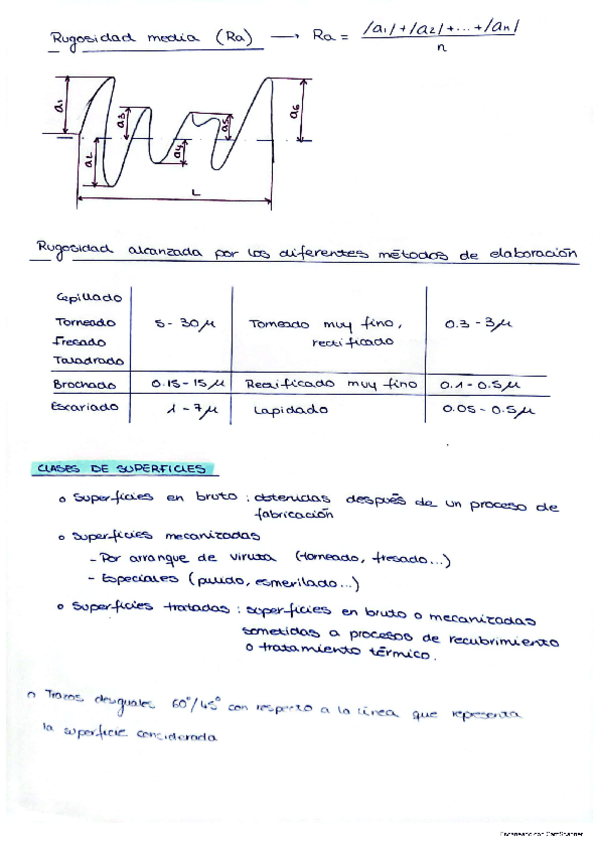 Rugosidad media (Ra) → Ra = |a1|+|a2|+...+|an| / n
a1 a2 a3 a4 a5 a6
L
Rugosidad alcanzada por los diferentes métodos de elaboración
Cepillado
Torneado 5 - 30 μ Torneado muy fino, 0.3 - 3 μ
Fresado rectificado
Taladrado
Brochado 0.15 - 15 μ Rectificado muy fino 0.1 - 0.5 μ
Escariado 1 - 7 μ Lapidado 0.05 - 0.5 μ
CLASES DE SUPERFICIES
o Superficies en bruto : obtenidas después de un proceso de
fabricación
o Superficies mecanizadas
- Por arranque de viruta (torneado, fresado...)
- Especiales (pulido, esmerilado...)
o Superficies tratadas : superficies en bruto o mecanizadas
sometidas a procesos de recubrimiento
o tratamiento térmico.
o Trazos desiguales 60°/45° con respecto a la línea que representa
la superficie considerada
Escaneado con CamScanner